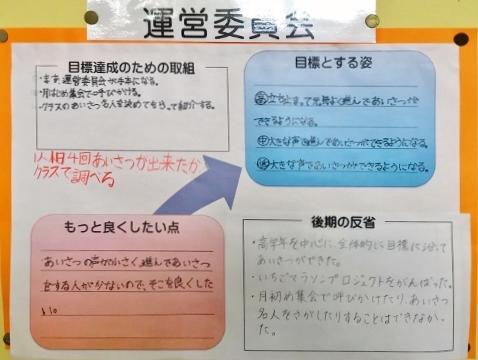 運営委員会
目標達成のための取組
・まず、運営委員会が手本になる。
・月はじめ集会で呼びかける。
・クラスのあいさつ名人を決めてもらって紹介する。
1人1日4回あいさつが出来たか
クラスで調べる
目標とする姿
高立ち止まって元気よく進んであいさつが
できるようになる。
中大きな声で進んであいさつができるようになる。
低大きな声であいさつができるようになる。
もっと良くしたい点
あいさつの声が小さく、進んであいさつ
をする人が少ないので、そこを良くした
い。
後期の反省
・高学年を中心に、全体的に目標に沿って
あいさつができた。
・いちごマラソンプロジェクトをがんばった。
・月初め集会で呼びかけたり、あいさつ
名人をさがしたりすることはできなかっ
た。